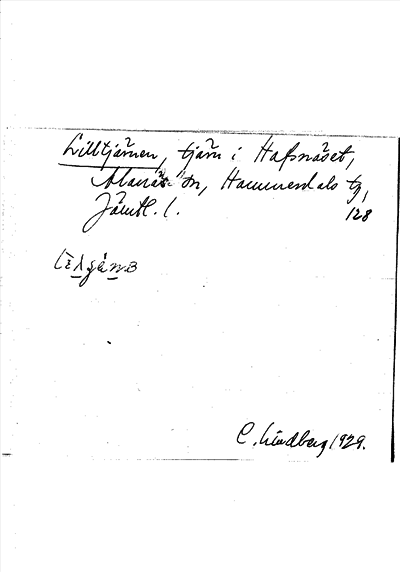 Lilltjärnen, tjärn i Hafsnäset,
Alanäs sn, Hammerdals tg,
Jämtl. l.
128
C. Lindberg 1929.